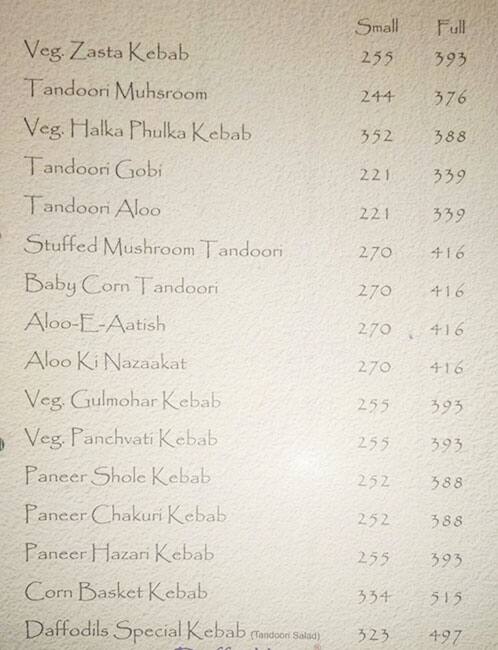 Small Full
Veg. Zasta Kebab 255 393
Tandoori Muhsroom 244 376
Veg. Halka Phulka Kebab 352 388
Tandoori Gobi 221 339
Tandoori Aloo 221 339
Stuffed Mushroom Tandoori 270 416
Baby Corn Tandoori 270 416
Aloo-E-Aatish 270 416
Aloo Ki Nazaakat 270 416
Veg. Gulmohar Kebab 255 393
Veg. Panchvati Kebab 255 393
Paneer Shole Kebab 252 388
Paneer Chakuri Kebab 252 388
Paneer Hazari Kebab 255 393
Corn Basket Kebab 334 515
Daffodils Special Kebab (Tandoori Salad) 323 497